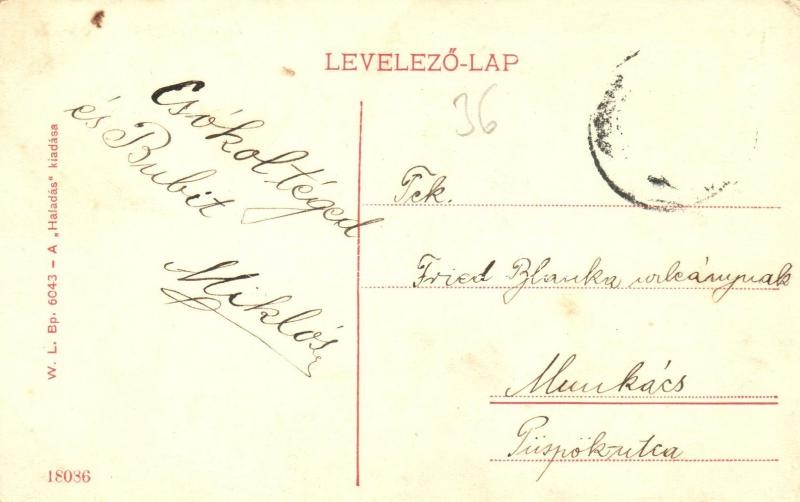 LEVELEZŐ-LAP
36
Csókol téged
és Bubit
Miklós
Tek.
Fried Blanka urleánynak
Munkács
Püspök-utca
W. L. Bp. 6043 – A „Haladás" kiadása
18036